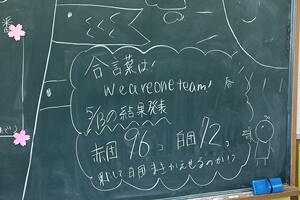 合言葉は!
we are one team!
の結果発表
赤団 96コ 白団 12コ
して白団まきかえせるのか!?